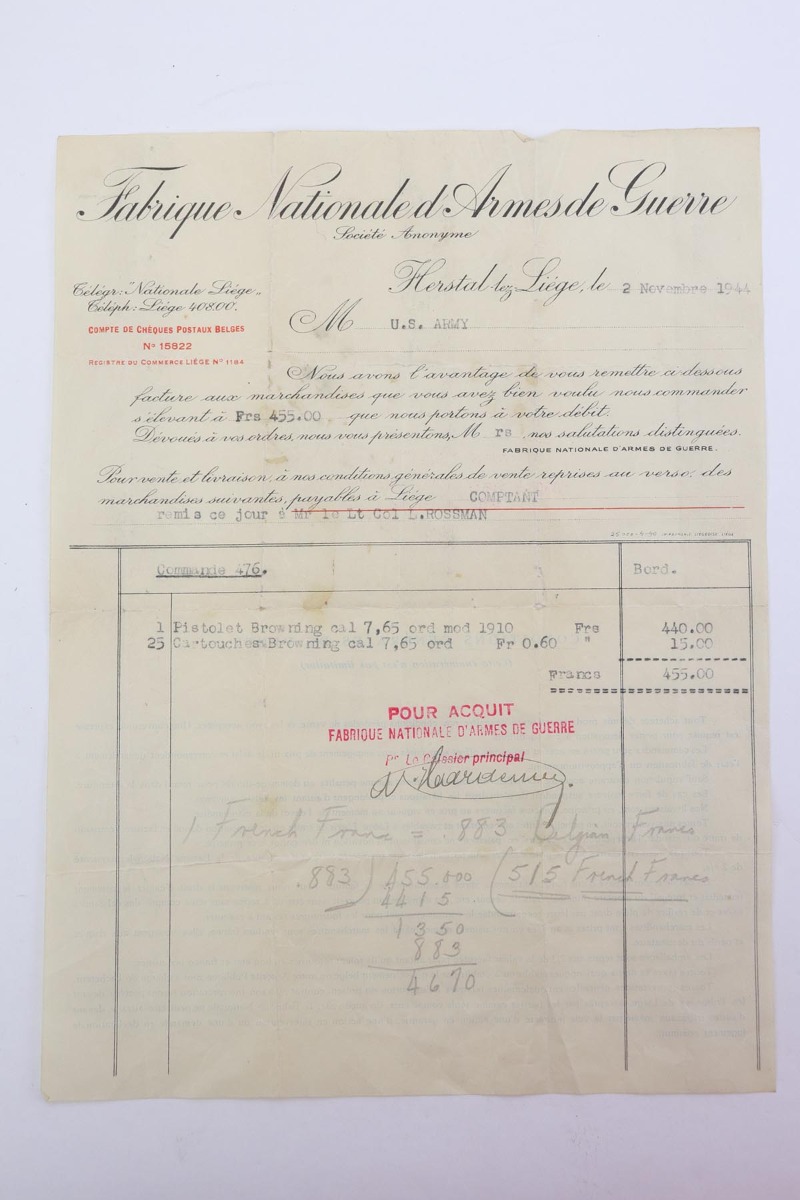 Fabrique Nationale d'Armes de Guerre
Société Anonyme
Herstal-lez-Liége, le 2 Novembre 1944
Télégr: "Nationale Liége"
Téléph: Liége 40800.
COMPTE DE CHÈQUES POSTAUX BELGES
No 15822
REGISTRE DU COMMERCE LIÉGE No 1184
M U.S. ARMY
Nous avons l'avantage de vous remettre ci-dessous
facture aux marchandises que vous avez bien voulu nous commander
s'élevant à Frs 455.00 que nous portons à votre débit.
Dévoués à vos ordres, nous vous présentons, M rs , nos salutations distinguées.
FABRIQUE NATIONALE D'ARMES DE GUERRE.
Pour vente et livraison, à nos conditions générales de vente reprises au verso, des
marchandises suivantes, payables à Liége COMPTANT
remis ce jour à Mr le Lt Col L.ROSSMAN
Commande 476. Bord.
1 Pistolet Browning cal 7,65 ord mod 1910 Frs 440.00
25 Cartouches Browning cal 7,65 ord Fr 0.60 " 15.00
Francs 455.00
POUR ACQUIT
FABRIQUE NATIONALE D'ARMES DE GUERRE
Pr Le Caissier principal
1 French Franc = .883 Belgian Francs
.883 ) 455.000 ( 515 French Francs
4415
1350
883
4670